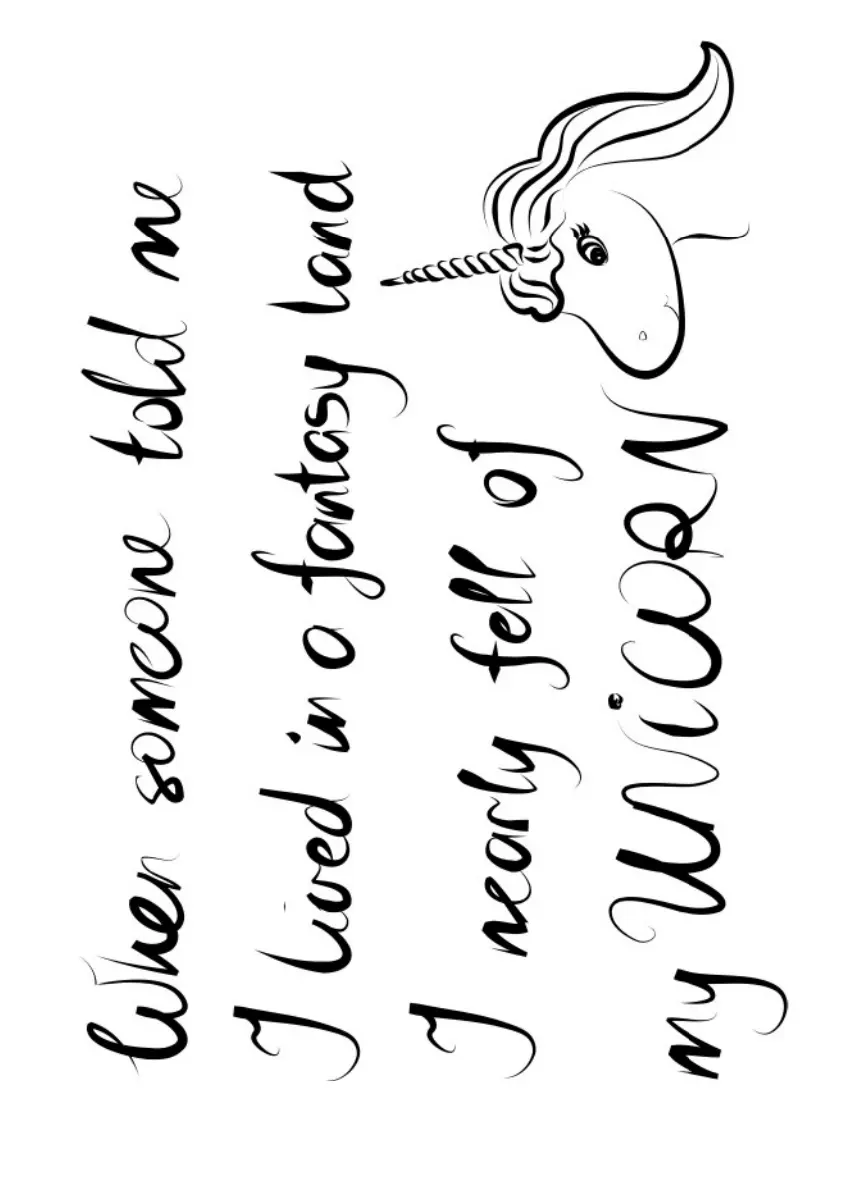 When someone told me
I lived in a fantasy land
I nearly fell of
my UNiCORN